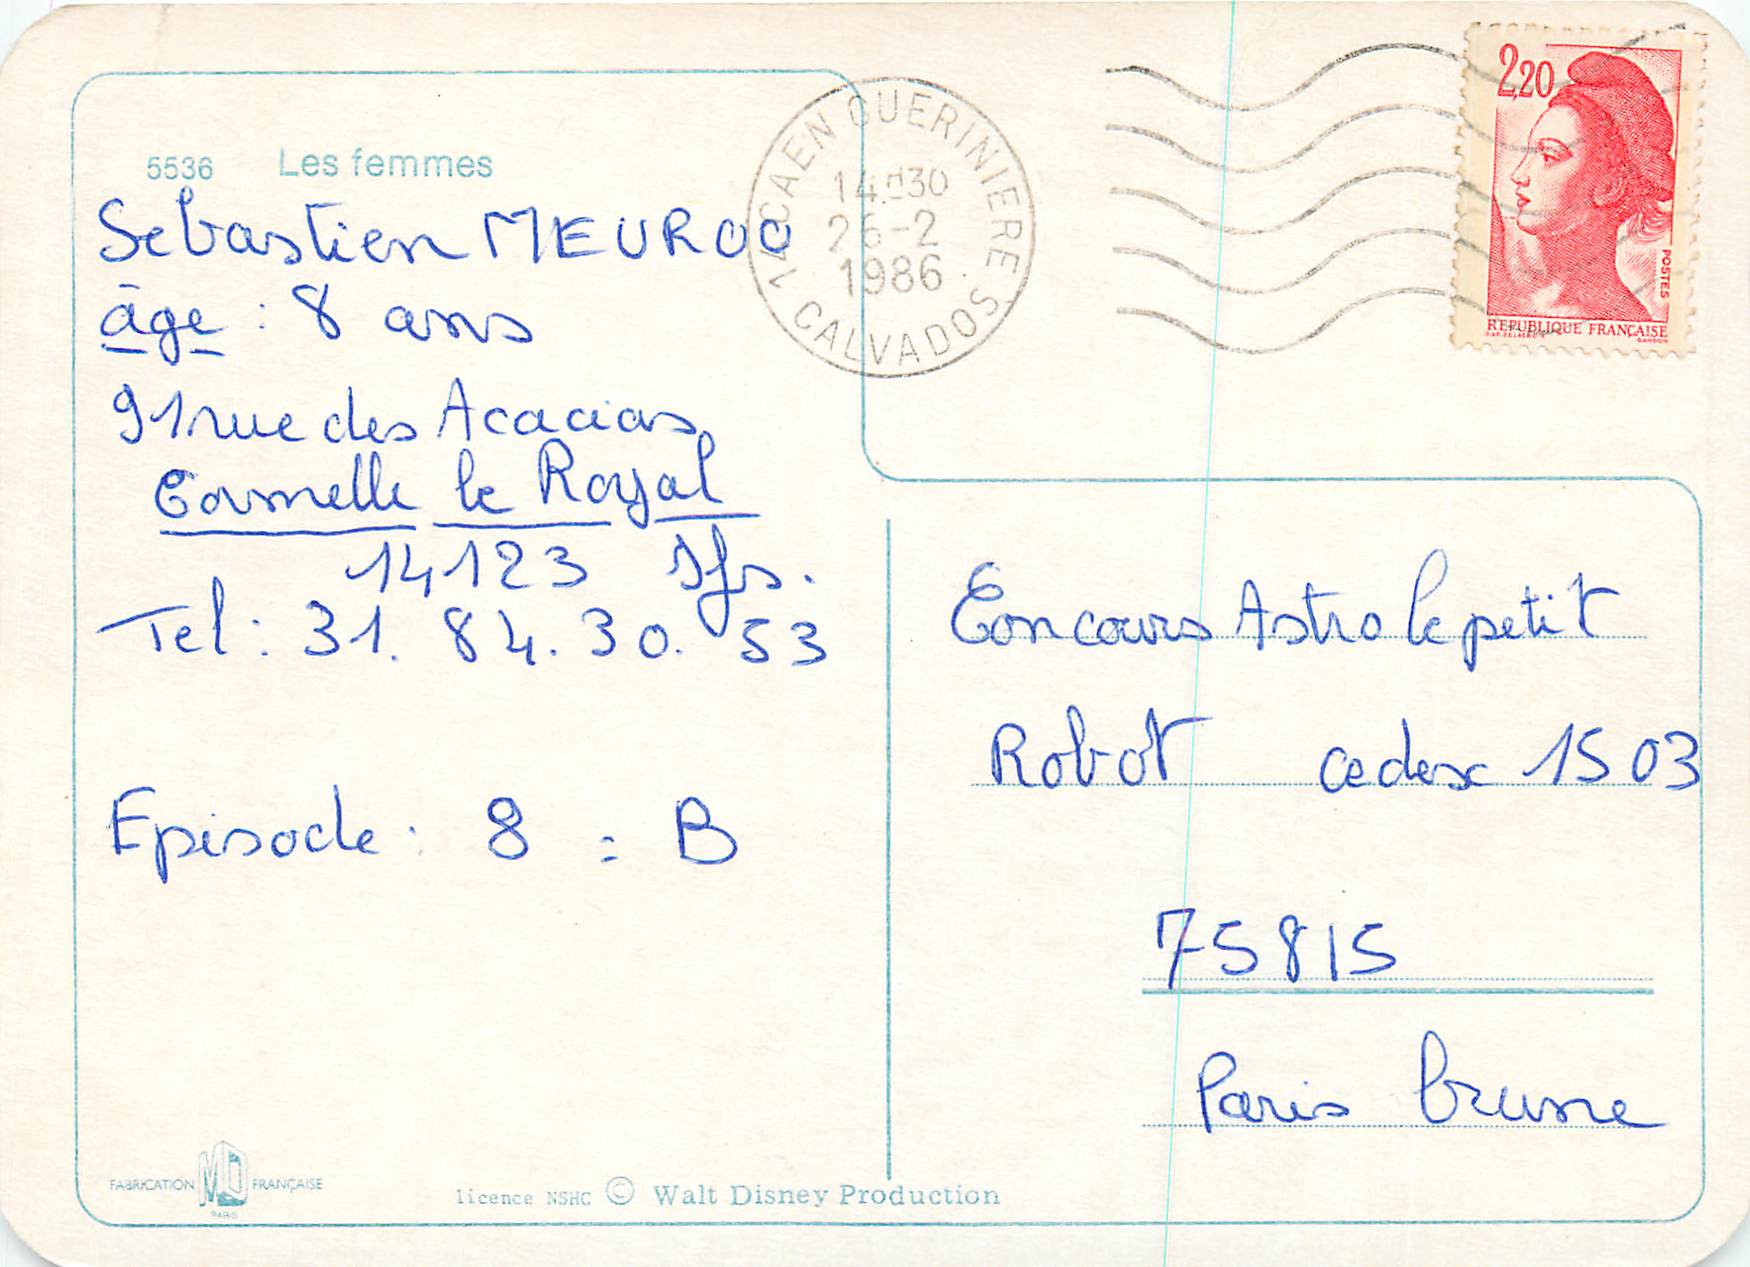 5536 Les femmes
Sebastien MEUROC
âge : 8 ans
91 rue des Acacias
Cormelle le Royal
14123 Ifs.
Tel : 31. 84. 30. 53
Episode : 8 = B
14 CAEN GUERINIERE
14H30
26-2
1986
CALVADOS
2,20
POSTES
REPUBLIQUE FRANÇAISE
GANDON
Concours Astro le petit
Robot cedex 1503
75815
Paris brune
FABRICATION MD FRANÇAISE
PARIS
licence NSHC © Walt Disney Production